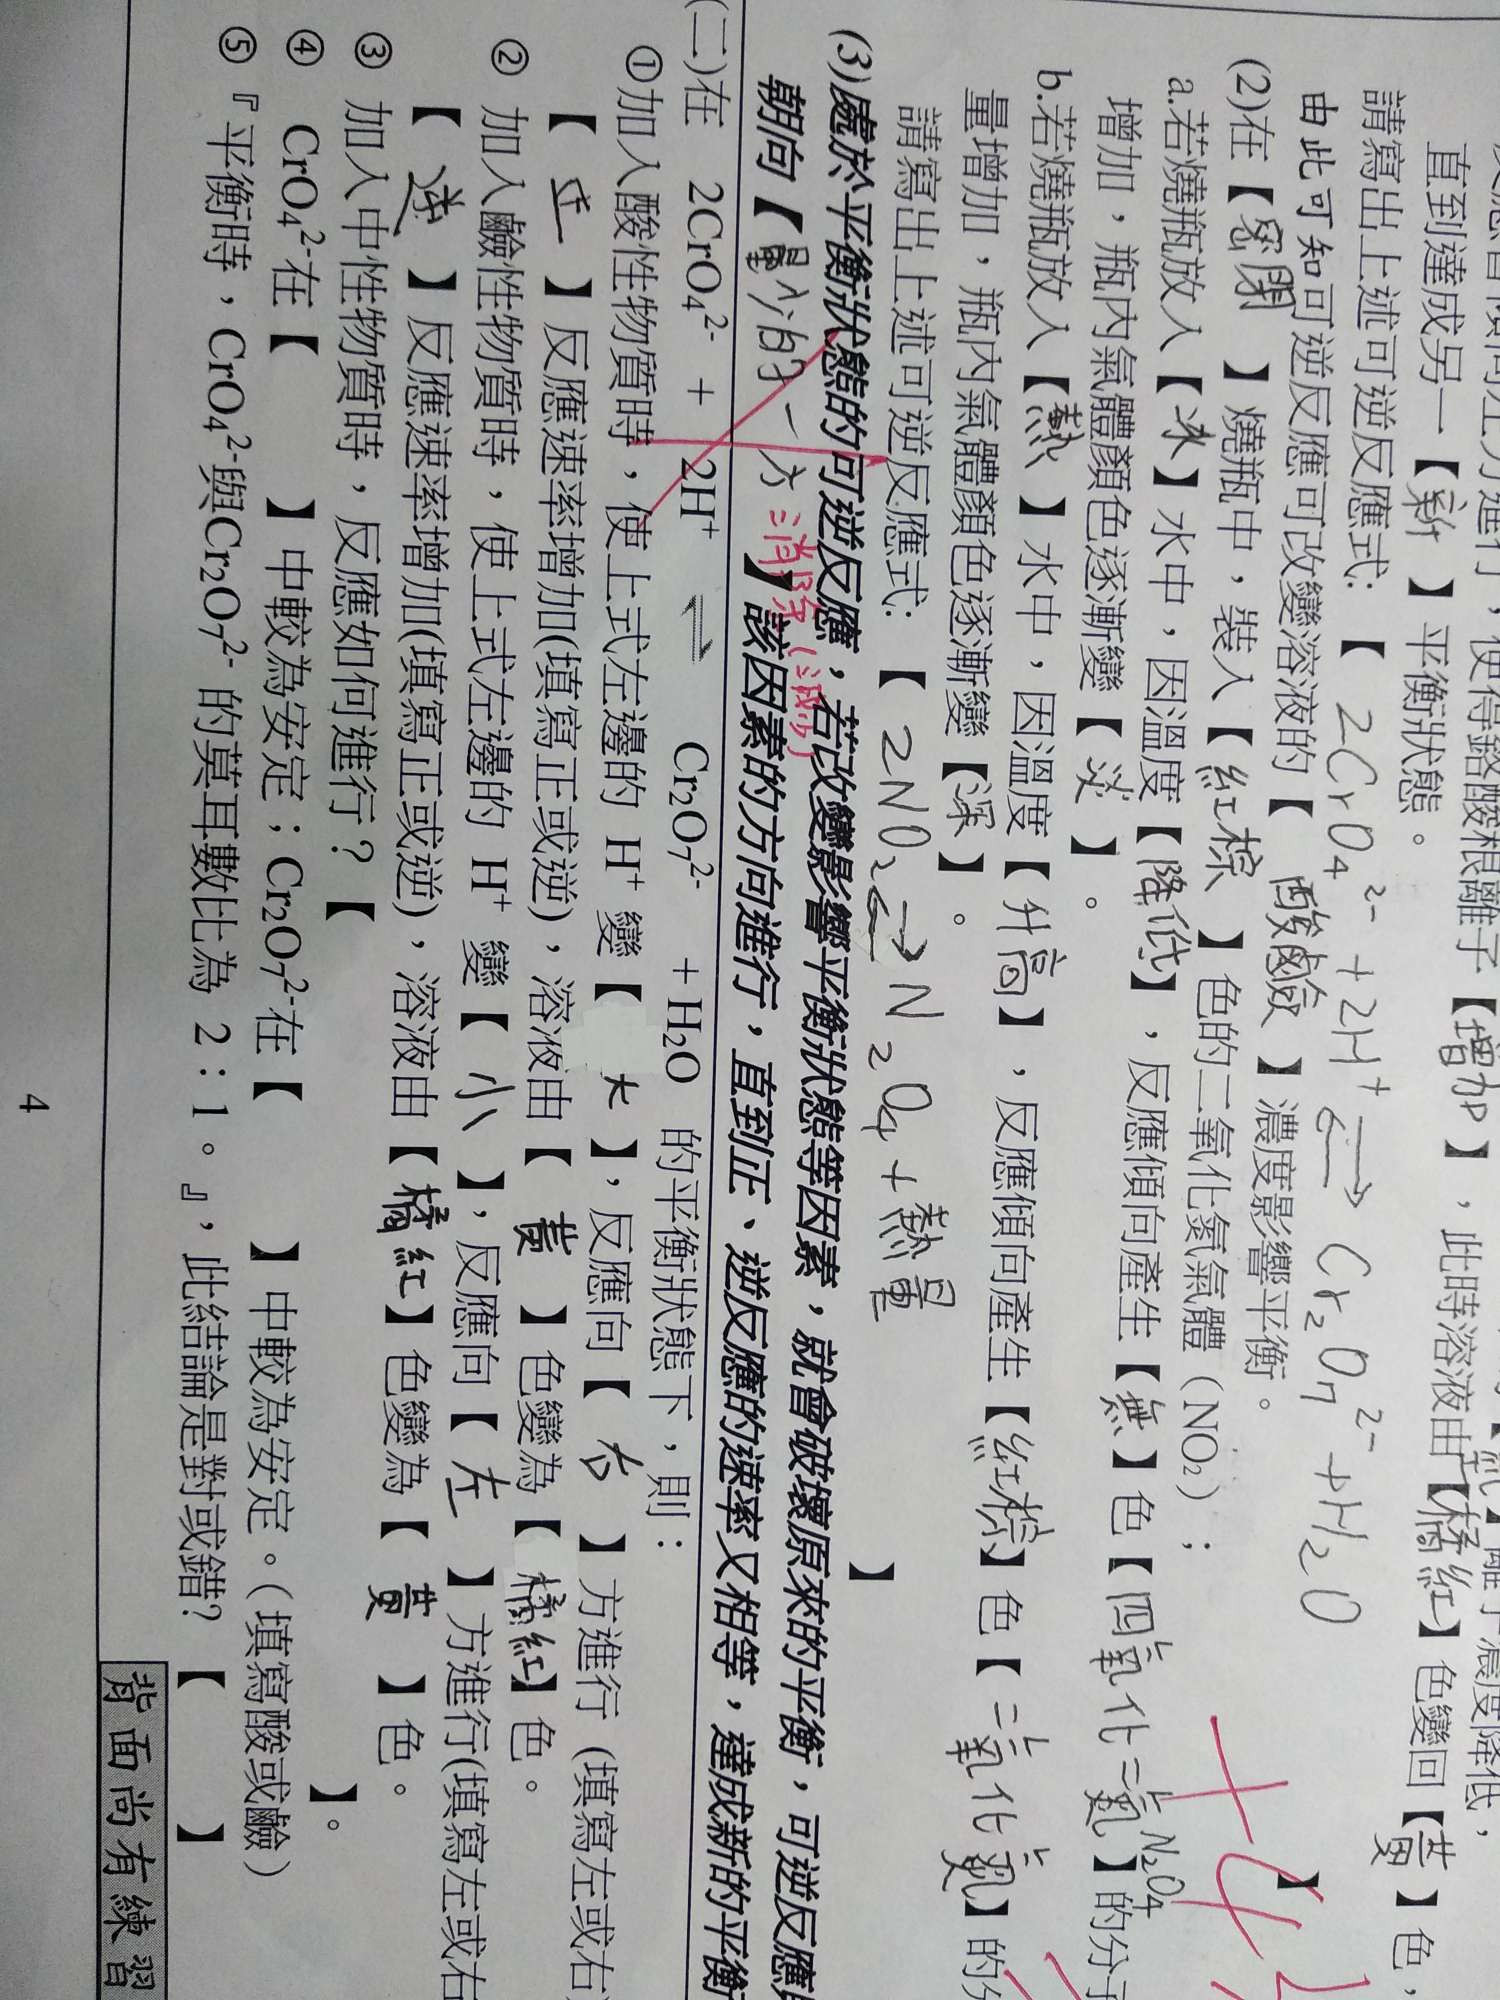 直到達成另一【新】平衡狀態。
請寫出上述可逆反應式:【2CrO₄²⁻+2H⁺⇌Cr₂O₇²⁻+H₂O】
由此可知可逆反應可改變溶液的【酸鹼】濃度影響平衡。
(2)在【密閉】燒瓶中,裝入【紅棕】色的二氧化氮氣體(NO₂);
a.若燒瓶放入【冰】水中,因溫度【降低】,反應傾向產生【無】色【四氧化二氮】的分子 N₂O₄
增加,瓶內氣體顏色逐漸變【淡】。
b.若燒瓶放入【熱】水中,因溫度【升高】,反應傾向產生【紅棕】色【二氧化氮】的
量增加,瓶內氣體顏色逐漸變【深】。
請寫出上述可逆反應式:【2NO₂⇌N₂O₄+熱量】
(3)處於平衡狀態的可逆反應,若改變影響平衡狀態等因素,就會破壞原來的平衡,可逆反應
朝向【 消除(減少)】該因素的方向進行,直到正、逆反應的速率又相等,達成新的平衡
(二)在 2CrO₄²⁻ + 2H⁺ ⇌ Cr₂O₇²⁻ + H₂O 的平衡狀態下,則:
①加入酸性物質時,使上式左邊的 H⁺ 變【大】,反應向【右】方進行 (填寫左或右)
【正】反應速率增加(填寫正或逆),溶液由【黃】色變為【橘紅】色。
② 加入鹼性物質時,使上式左邊的 H⁺ 變【小】,反應向【左】方進行(填寫左或右
【逆】反應速率增加(填寫正或逆),溶液由【橘紅】色變為【黃】色。
③ 加入中性物質時,反應如何進行?【 】。
④ CrO₄²⁻在【 】中較為安定;Cr₂O₇²⁻在【 】中較為安定。(填寫酸或鹼)
⑤『平衡時,CrO₄²⁻與Cr₂O₇²⁻ 的莫耳數比為 2:1。』,此結論是對或錯?【 】
背面尚有練習
4